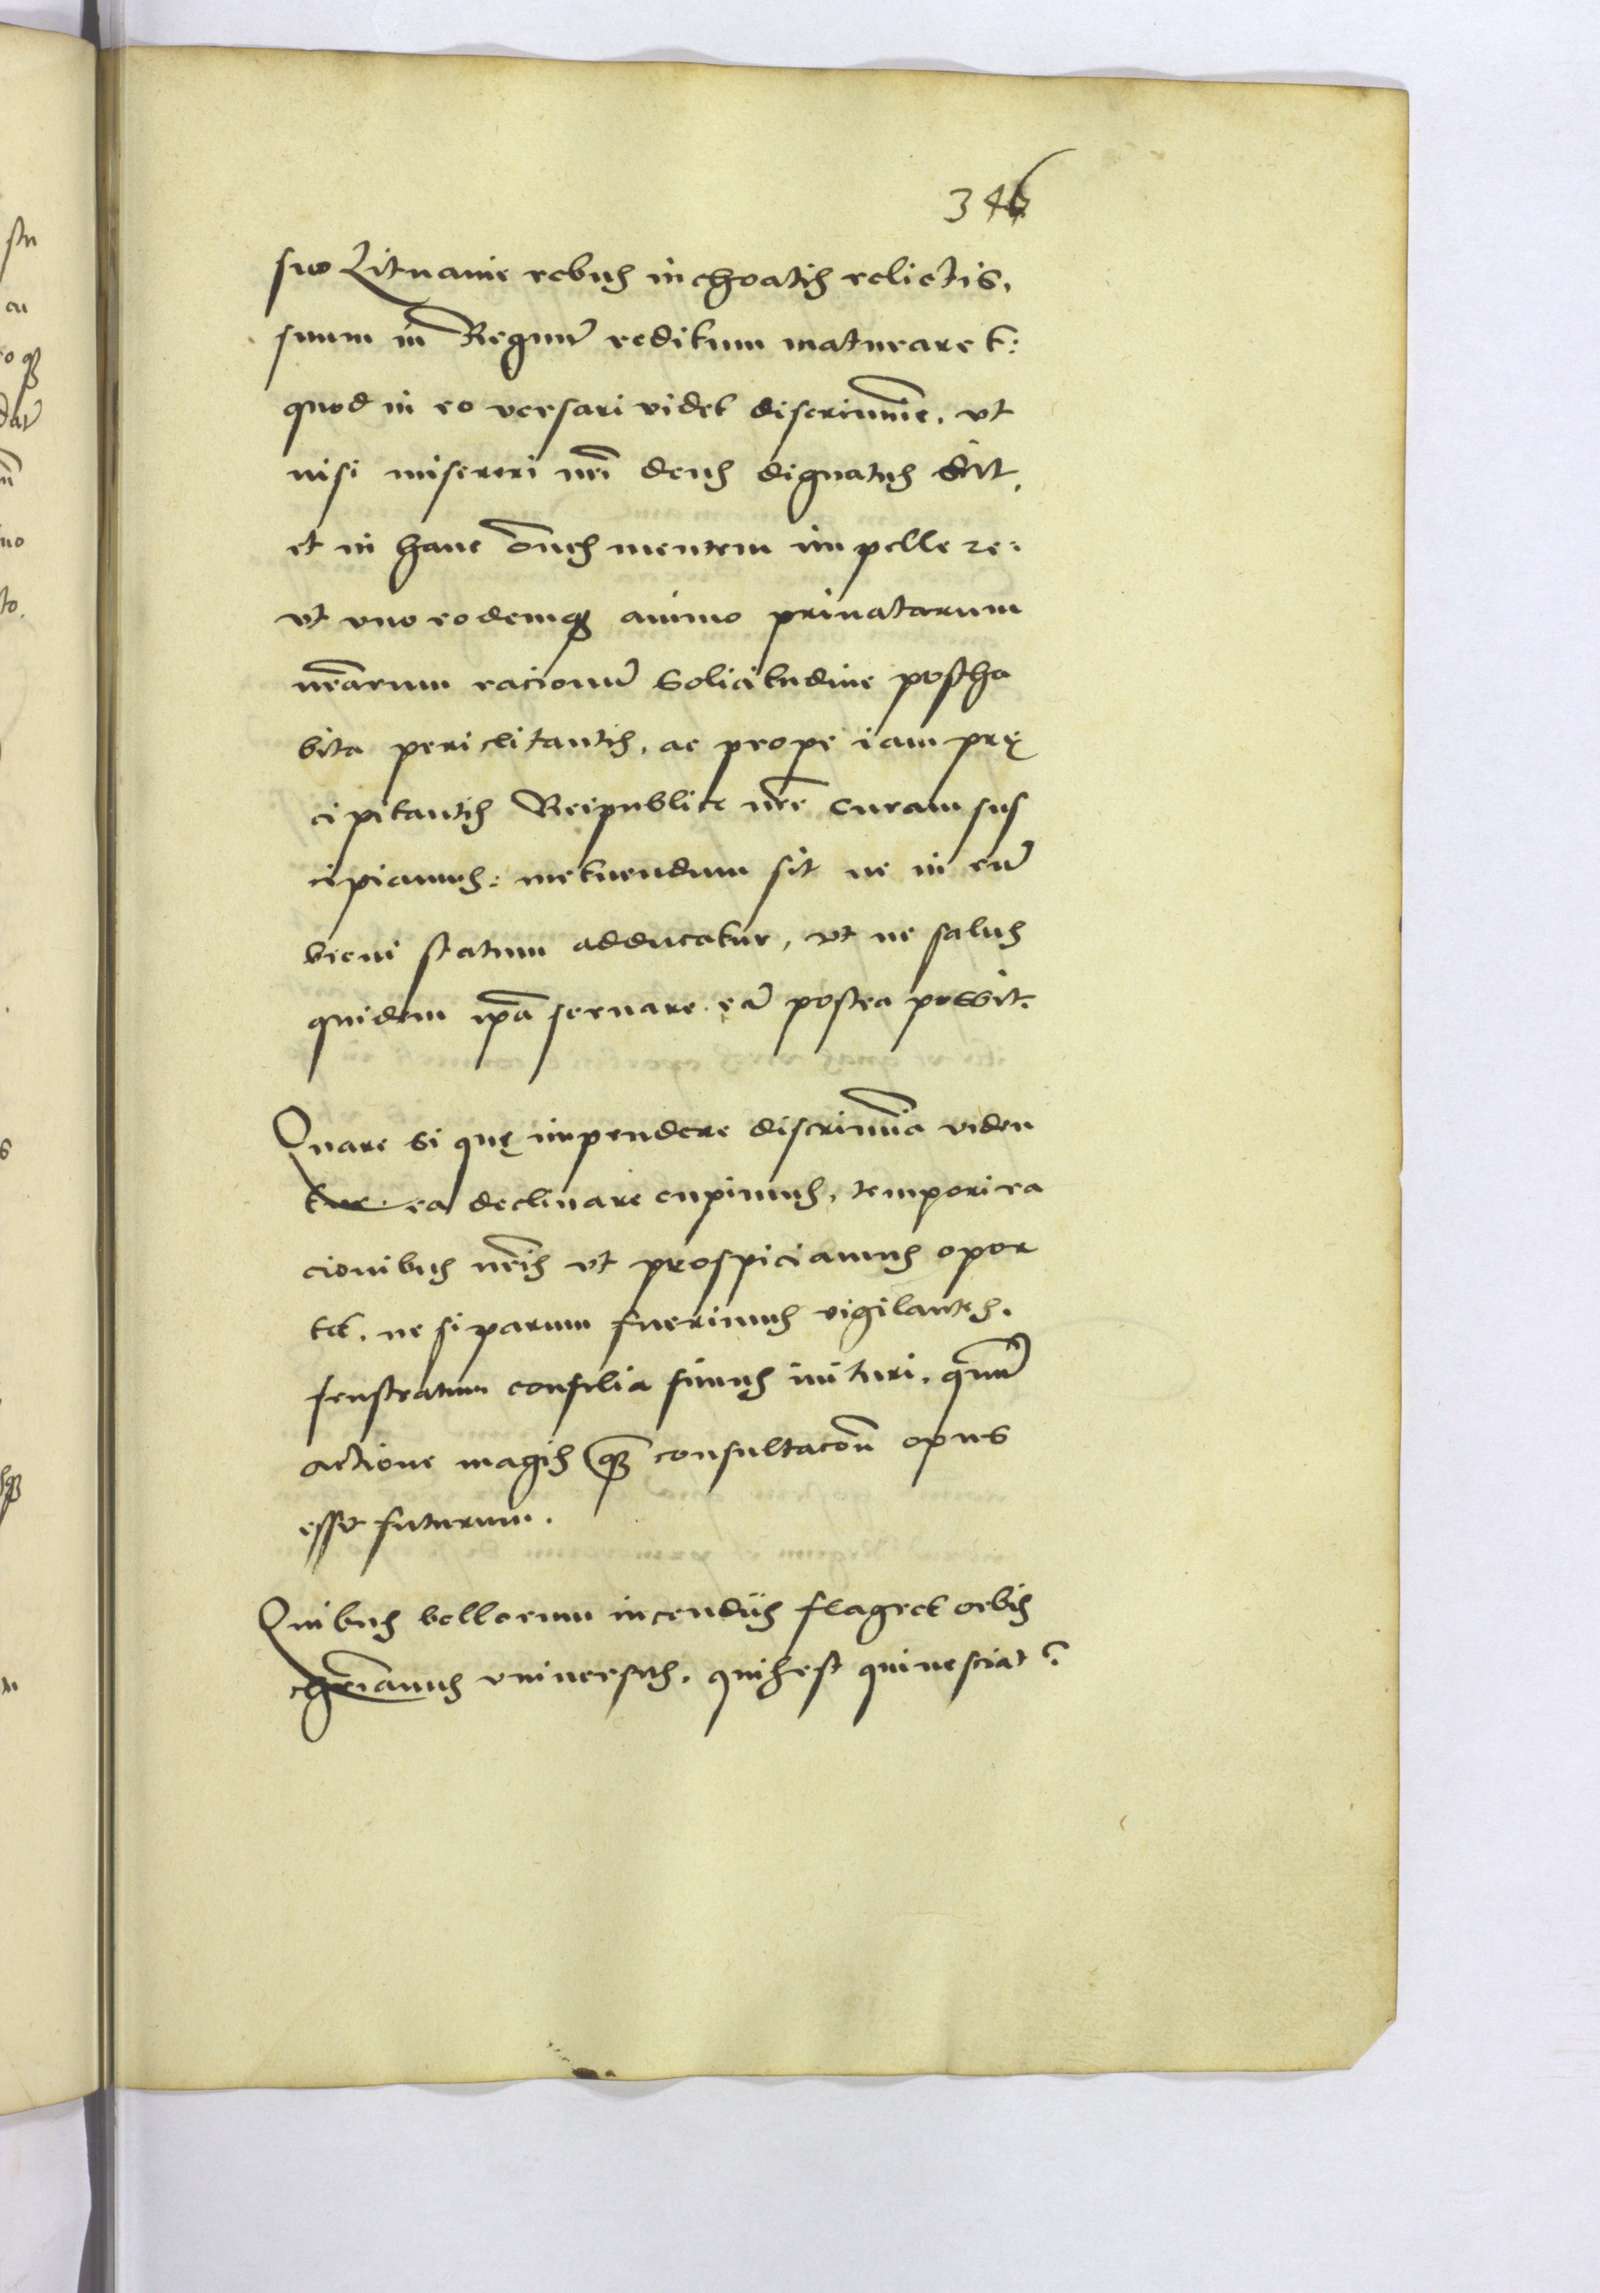 346
suo Lituanie rebus inchoatis relictis,
suum in Regnũ reditum maturaret:
quod in eo versari videt discrimine, vt
nisi misereri nr̃i deus dignatus sit,
et in hanc om̃es mentem impellere:
vt vno eodemq animo priuatarum
nr̃arum racionũ solicitudine postha
bita periclitantis, ac prope iam prę
cipitantis Reipublice nr̃e curam sus
cipiamus: metuendum sit ne in eũ
breui statum adducatur, vt ne salus
quidem ip̃a seruare eã postea possit.
Quare si quę impendere discrimĩa viden
tur. ea declinare cupimus, tempori ra
cionibus nr̃is vt prospiciamus opor
tet. ne si parum fuerimus vigilantes.
frustratum consilia simus inituri, quũ
actione magis q̃ consultacoñ opus
esset futurum.
Quibus bellorum incendiis flagret orbis
chr̃ianus vniuersus, quis est qui nesciat?